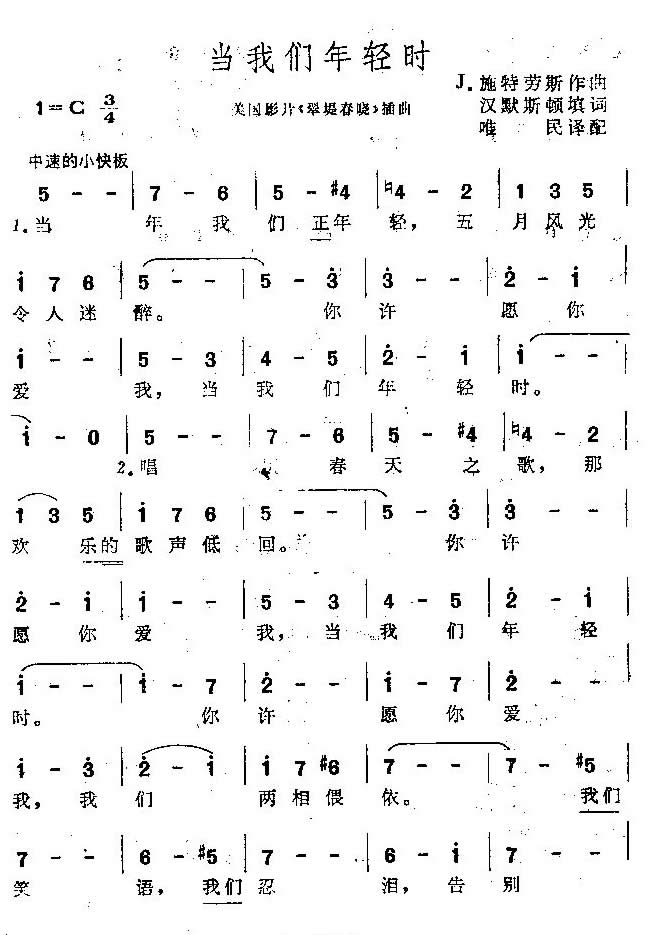 当我们年轻时
1=C 3/4
美国影片《翠堤春晓》插曲
J.施特劳斯作曲
汉默斯顿填词
唯 民译配
中速的小快板
5 - - | 7 - 6 | 5 - #4 | ♮4 - 2 | 1 3 5 |
1.当 年 我 们 正年 轻，五 月 风 光
i 7 6 | 5 - - | 5 - 3̇ | 3̇ - - | 2̇ - i |
令 人 迷 醉。 你 许 愿 你
i - - | 5 - 3 | 4 - 5 | 2̇ - i | i - - |
爱 我，当 我 们 年 轻 时。
i - 0 | 5 - - | 7 - 6 | 5 - #4 | ♮4 - 2 |
2.唱 春 天 之 歌，那
1 3 5 | i 7 6 | 5 - - | 5 - 3̇ | 3̇ - - |
欢 乐的 歌 声 低 回。 你 许
2̇ - i | i - - | 5 - 3 | 4 - 5 | 2̇ - i |
愿 你 爱 我，当 我 们 年 轻
i - - | i - 7 | 2̇ - - | i - 7 | 2̇ - - |
时。 你 许 愿 你 爱
i - 3̇ | 2̇ - i | i 7 #6 | 7 - - | 7 - #5 |
我，我 们 两 相 偎 依。 我们
7 - - | 6 - #5 | 7 - - | 6 - i | 7 - - |
笑 语，我们 忍 泪，告 别